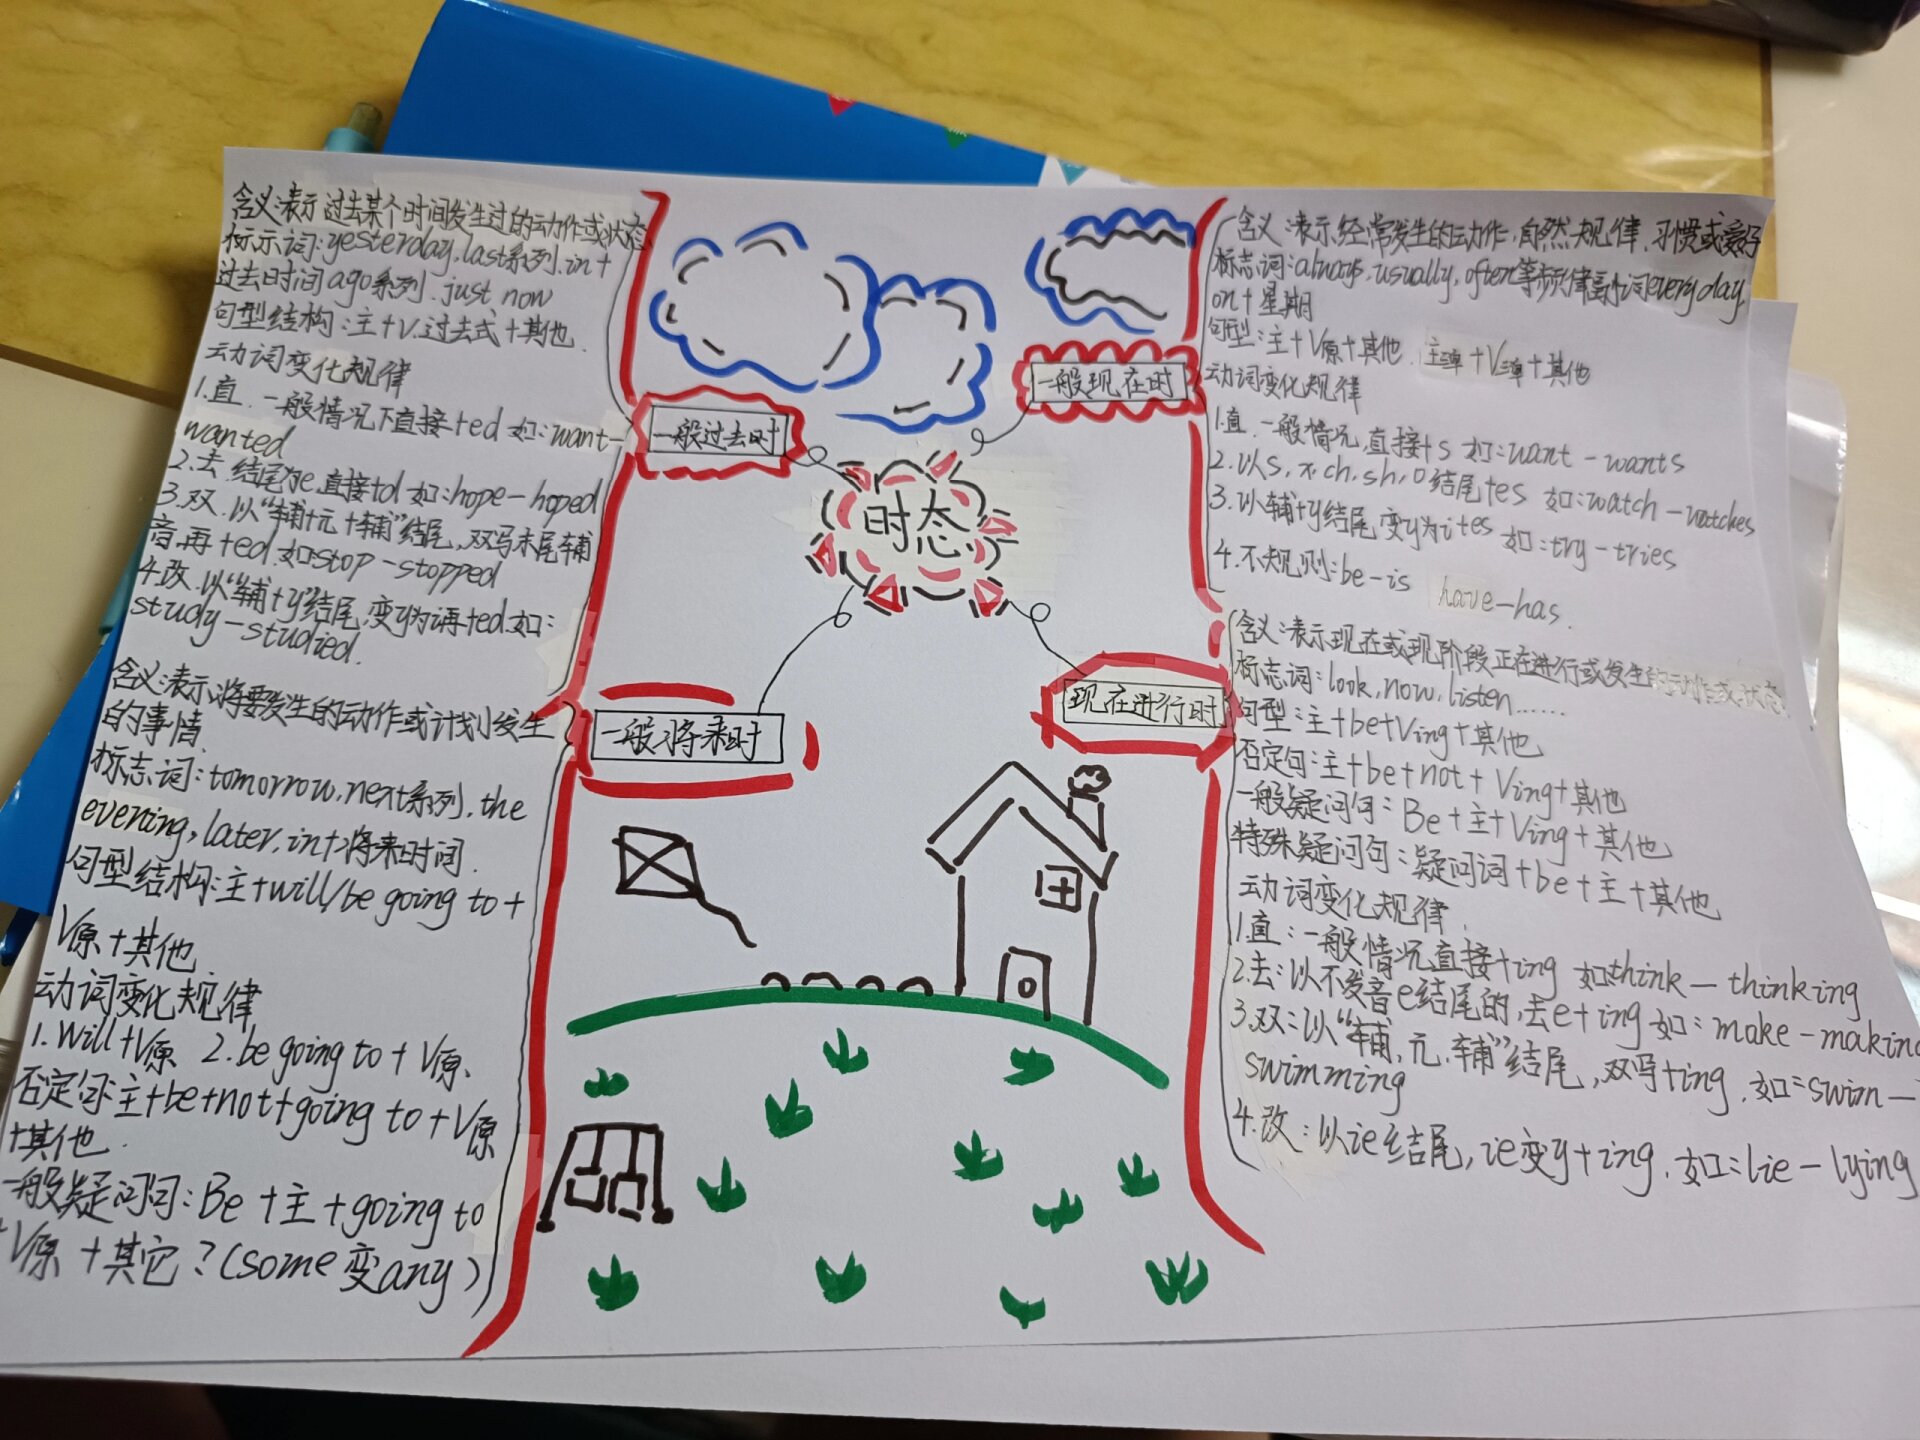 含义:表示过去某个时间发生过的动作或状态
标示词:yesterday,last系列,in+
过去时间 ago系列.just now
句型结构:主+v.过去式+其他.
动词变化规律
1.直.一般情况下直接+ed 如:want-
wanted
2.去.结尾为e,直接+d 如:hope-hoped
3.双.以“辅+元+辅”结尾,双写末尾辅
音,再+ed.如stop-stopped
4.改.以“辅+y”结尾,变y为i再+ed.如:
study-studied.
含义:表示将要发生的动作或计划发生
的事情.
标志词:tomorrow,next系列.the
evening,later,in+将来时间.
句型结构:主+will/be going to+
V原+其他
动词变化规律
1.Will+V原 2.be going to+V原.
否定句:主+be+not+going to+V原
+其他.
一般疑问句:Be+主+going to
+V原+其它?(some变any)
一般过去时
一般现在时
时态
一般将来时
现在进行时
含义:表示经常发生的动作,自然规律,习惯或爱好
标志词:always,usually,often等频律副词every day,
on+星期
句型:主+V原+其他. 主三单+V三单+其他
动词变化规律
1.直.一般情况,直接+s 如:want-wants
2.以s,x,ch,sh,o结尾+es 如:watch-watches
3.以辅+y结尾,变y为i+es 如:try-tries
4.不规则:be-is have-has.
含义:表示现在或现阶段正在进行或发生的动作或状态
标志词:look,now,listen......
句型:主+be+Ving+其他
否定句:主+be+not+Ving+其他
一般疑问句:Be+主+Ving+其他
特殊疑问句:疑问词+be+主+其他
动词变化规律.
1.直:一般情况直接+ing 如think-thinking
2.去:以不发音e结尾的,去e+ing 如:make-making
3.双:以“辅,元,辅”结尾,双写+ing.如:swim-
swimming
4.改:以ie结尾,ie变y+ing.如:lie-lying